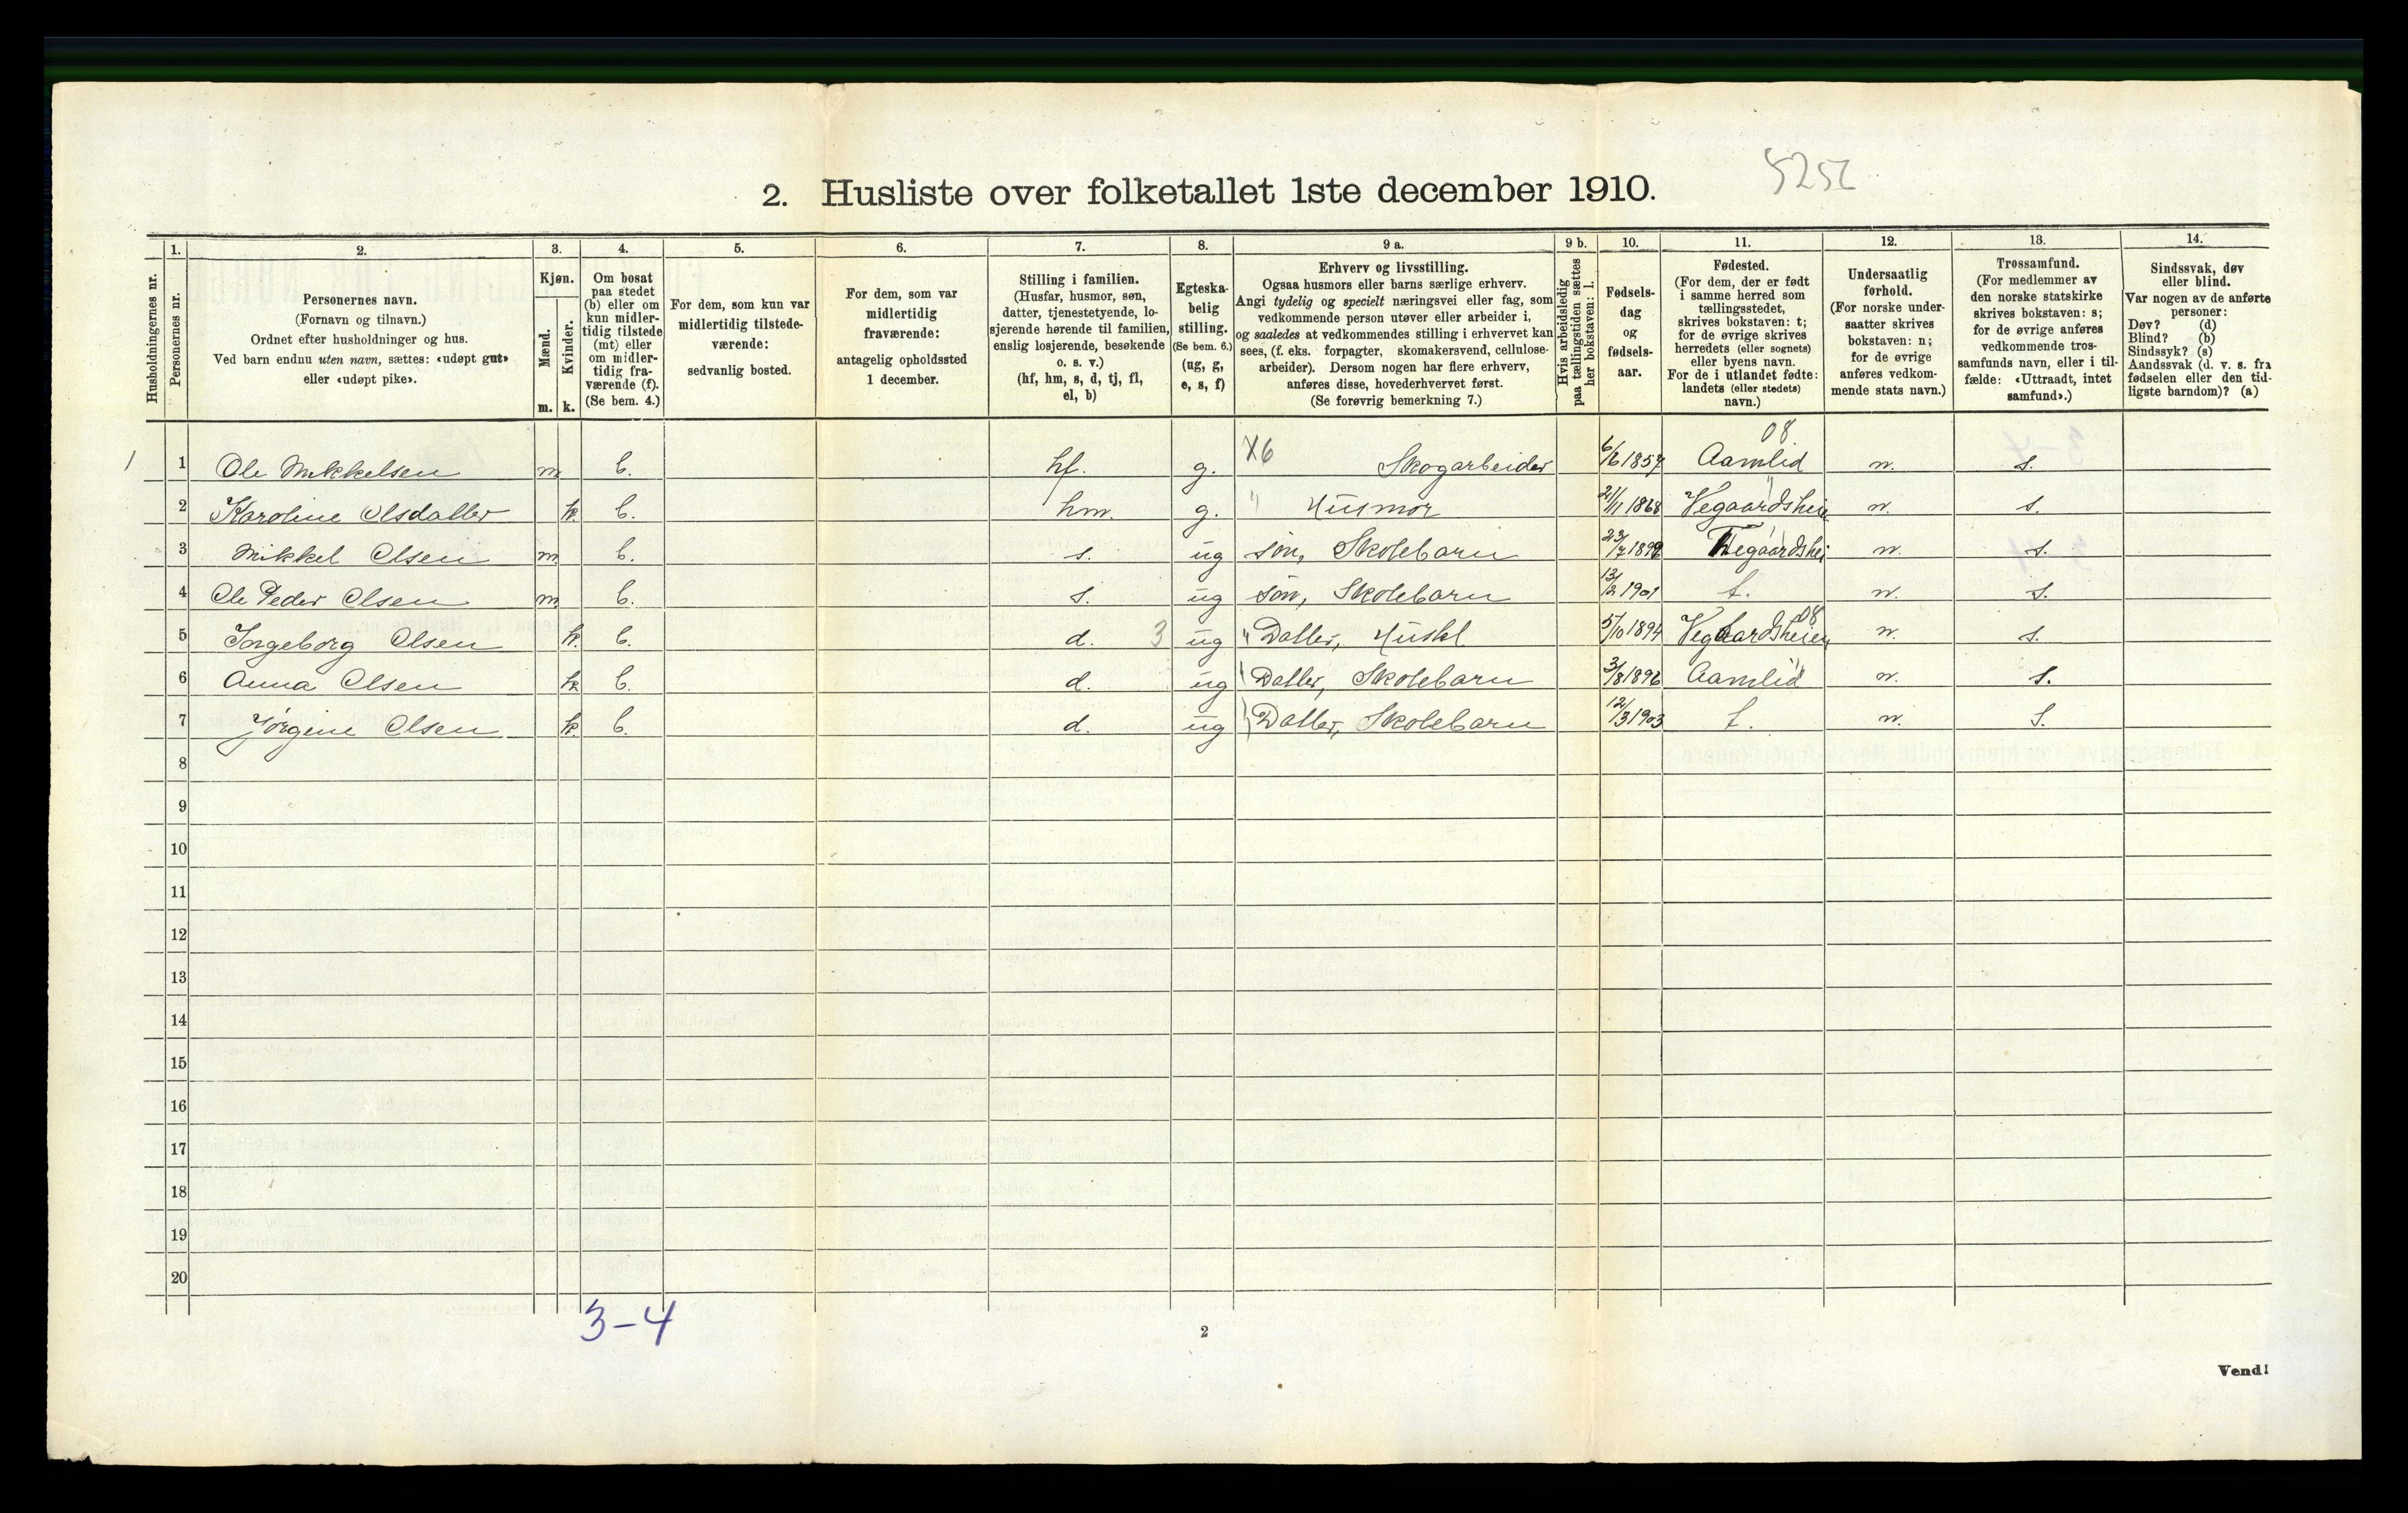 5252
2. Husliste over folketallet 1ste december 1910.
Husholdningernes nr.
1. Personernes nr.
2. Personernes navn.
(Fornavn og tilnavn.)
Ordnet efter husholdninger og hus.
Ved barn endnu uten navn, sættes: «udøpt gut»
eller «udøpt pike».
3. Kjøn.
Mænd. m.
Kvinder. k.
4. Om bosat
paa stedet
(b) eller om
kun midler-
tidig tilstede
(mt) eller
om midler-
tidig fra-
værende (f).
(Se bem. 4.)
5. For dem, som kun var
midlertidig tilstede-
værende:
sedvanlig bosted.
6. For dem, som var
midlertidig
fraværende:
antagelig opholdssted
1 december.
7. Stilling i familien.
(Husfar, husmor, søn,
datter, tjenestetyende, lo-
sjerende hørende til familien,
enslig losjerende, besøkende
o. s. v.)
(hf, hm, s, d, tj, fl,
el, b)
8. Egteska-
belig
stilling.
(Se bem. 6.)
(ug, g,
e, s, f)
9 a. Erhverv og livsstilling.
Ogsaa husmors eller barns særlige erhverv.
Angi tydelig og specielt næringsvei eller fag, som
vedkommende person utøver eller arbeider i,
og saaledes at vedkommendes stilling i erhvervet kan
sees, (f. eks. forpagter, skomakersvend, cellulose-
arbeider). Dersom nogen har flere erhverv,
anføres disse, hovederhvervet først.
(Se forøvrig bemerkning 7.)
9 b. Hvis arbeidsledig
paa tællingstiden sættes
her bokstaven: l.
10. Fødsels-
dag
og
fødsels-
aar.
11. Fødested.
(For dem, der er født
i samme herred som
tællingsstedet,
skrives bokstaven: t;
for de øvrige skrives
herredets (eller sognets)
eller byens navn.
For de i utlandet fødte:
landets (eller stedets)
navn.)
12. Undersaatlig
forhold.
(For norske under-
saatter skrives
bokstaven: n;
for de øvrige
anføres vedkom-
mende stats navn.)
13. Trossamfund.
(For medlemmer av
den norske statskirke
skrives bokstaven: s;
for de øvrige anføres
vedkommende tros-
samfunds navn, eller i til-
fælde: «Uttraadt, intet
samfund».)
14. Sindssvak, døv
eller blind.
Var nogen av de anførte
personer:
Døv? (d)
Blind? (b)
Sindssyk? (s)
Aandssvak (d. v. s. fra
fødselen eller den tid-
ligste barndom)? (a)
08
1 1 Ole Mikkelsen m b. hf. g. X6 Skogarbeider 6/6 1857 Aamlid n. s.
2 Karoline Olsdatter k. b. hm. g. " Husmor 21/11 1868 Vegaardsheien n. s.
3 Mikkel Olsen m b. s. ug søn, Skolebarn 23/7 1899 Vegaardshei n. s.
4 Ole Peder Olsen m b. s. ug søn, Skolebarn 13/2 1901 t. n. s.
5 Ingeborg Olsen k. b. d. 3 ug " Datter, Hushl 5/10 1894 Vegaardsheien 08 n. s.
6 Anna Olsen k b. d. ug " Datter, Skolebarn 3/8 1896 Aamlid n. s.
7 Jørgine Olsen k b. d. ug " Datter, Skolebarn 12/3 1903 t. n. s.
8
9
10
11
12
13
14
15
16
17
18
19
20
3-4
2
Vend!